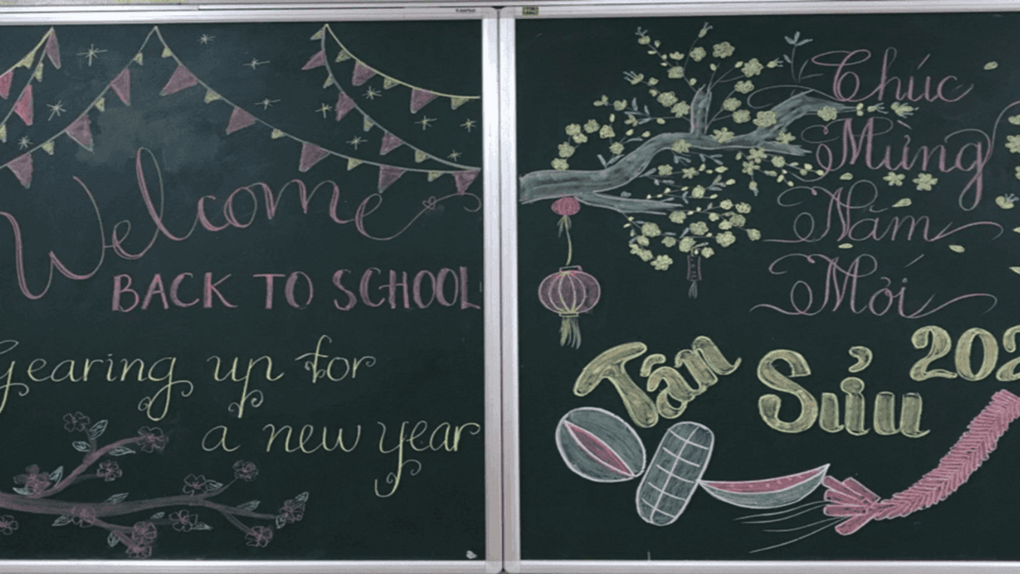 Welcome
BACK TO SCHOOL
Gearing up for
a new year
Chúc
Mừng
Năm
Mới
Tân Sửu 202